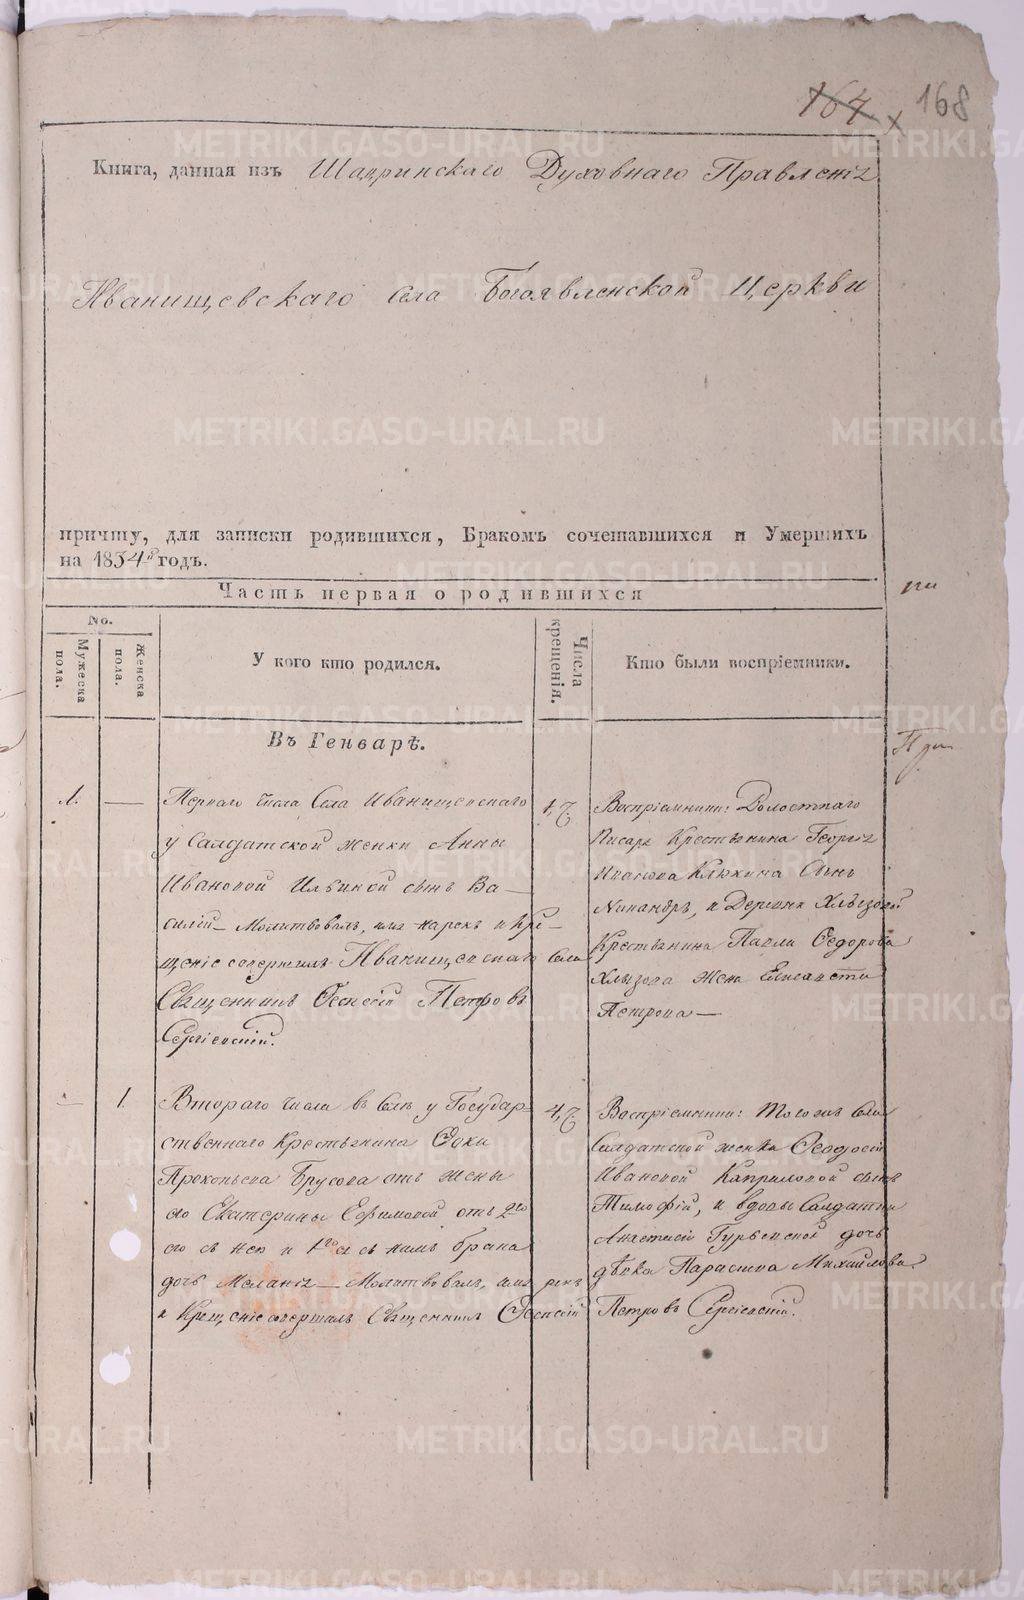 164 х 168
Книга, данная изъ Шадринскаго Духовнаго Правленія
Иванищевскаго села Богоявленской Церкви
причту, для записки родившихся, Бракомъ сочетавшихся и Умершихъ
на 1834й годъ.
Часть первая о родившихся
No.
Мужеска пола.
Женска пола.
У кого кто родился.
Числа крещенія.
Кто были воспріемники.
Въ Генварѣ.
1. —
Перваго числа Села Иванищевскаго
у Солдатской женки Анны
Ивановой Ильиной сынъ Ва-
силій — Молитвовалъ, имя нарекъ и Кре-
щеніе совершилъ Иванищевскаго Села
Священникъ Евсевій Петровъ
Сергіевскій.
1,
Воспріемники: Волостнаго
Писаря Крестьянина Георгія
Иванова Клюкина Сынъ
Никандръ, и Деревни Хлызовой
Крестьянина Павла Ѳедорова
Хлызова жена Елисавета
Петрова —
— 1.
Втораго числа въ Селѣ у Государ-
ственнаго Крестьянина Ѳоки
Прокопьева Брусова отъ жены
его Екатерины Ефимовой отъ 2го
его съ нею и 1го ея съ нимъ брака
дочь Меланія — Молитвовалъ, имя рекъ
и Крещеніе совершилъ Священникъ Евсевій
4,
Воспріемники: Тогожъ Села
Солдатской женки Ѳеодосіи
Ивановой Кавриловой сынъ
Тимофѣй, и вдовы Солдатки
Анастасіи Гурьевской дочь
дѣвка Парасковья Михайлова.
Петровъ Сергіевскій.
METRIKI.GASO-URAL.RU